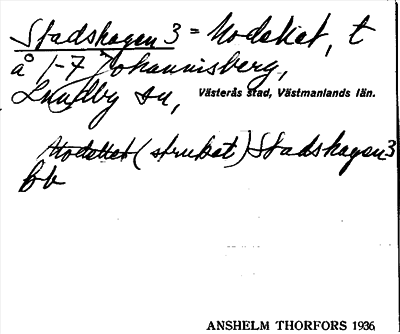 Stadshagen 3 = Modeket, t
å 1-7 Johannisberg,
Lundby sn, Västerås stad, Västmanlands län.
Modeket (struket) Stadshagen 3
bb
ANSHELM THORFORS 1936